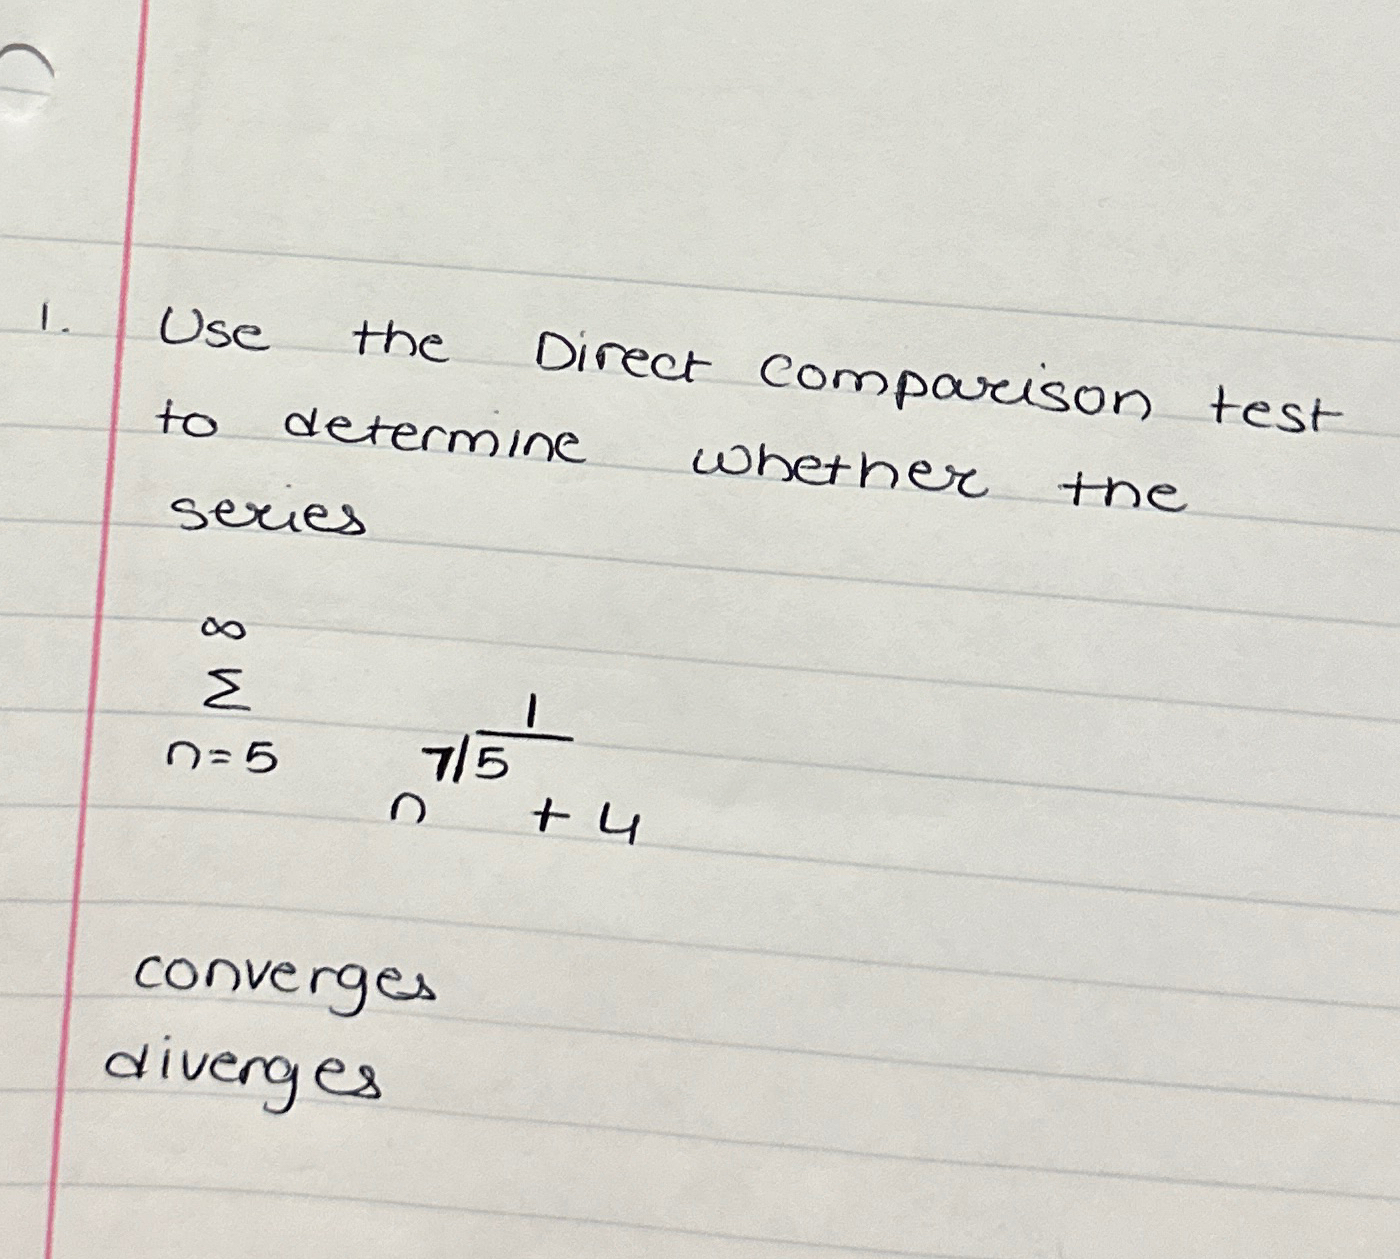 1. Use the Direct comparison test
to determine whether the
series
∞
Σ 1
n=5 7/5
n + 4
converges
diverges